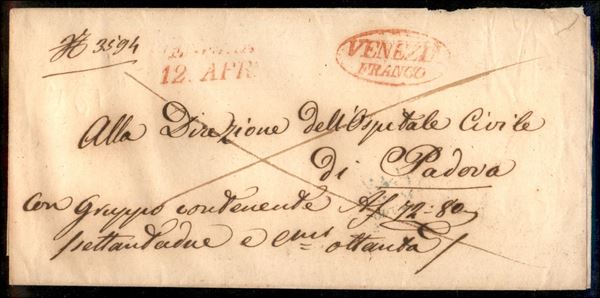 N 3594
VENEZIA
12. APR
VENEZIA
FRANCO
Alla Direzione dell'Ospitale Civile
di Padova
con Gruppo contenente Af 72=80
settantadue e cmi ottanta